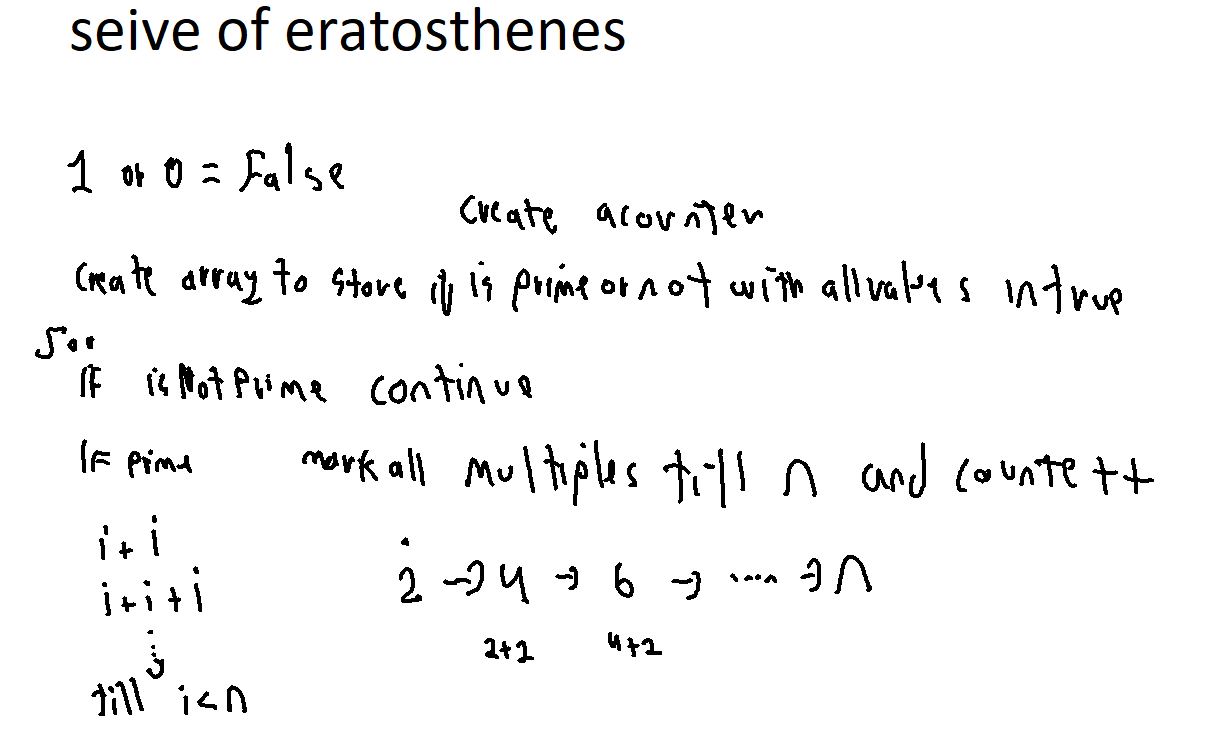 seive of eratosthenes
1 or 0 = False
create acounter
Create array to store if is prime or not with all values in true
for
IF is Not Prime continue
IF prime mark all multiples till n and counte ++
i + i
i + i + i
2 → 4 → 6 → .... → n
2+2 4+2
till i < n